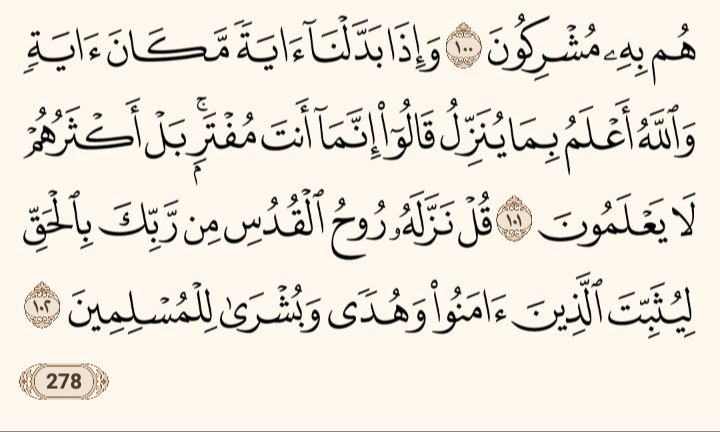 هُم بِهِۦ مُشْرِكُونَ ١٠٠ وَإِذَا بَدَّلْنَآ ءَايَةً مَّكَانَ ءَايَةٍ
وَٱللَّهُ أَعْلَمُ بِمَا يُنَزِّلُ قَالُوٓا۟ إِنَّمَآ أَنتَ مُفْتَرٍۭ ۚ بَلْ أَكْثَرُهُمْ
لَا يَعْلَمُونَ ١٠١ قُلْ نَزَّلَهُۥ رُوحُ ٱلْقُدُسِ مِن رَّبِّكَ بِٱلْحَقِّ
لِيُثَبِّتَ ٱلَّذِينَ ءَامَنُوا۟ وَهُدًى وَبُشْرَىٰ لِلْمُسْلِمِينَ ١٠٢
278